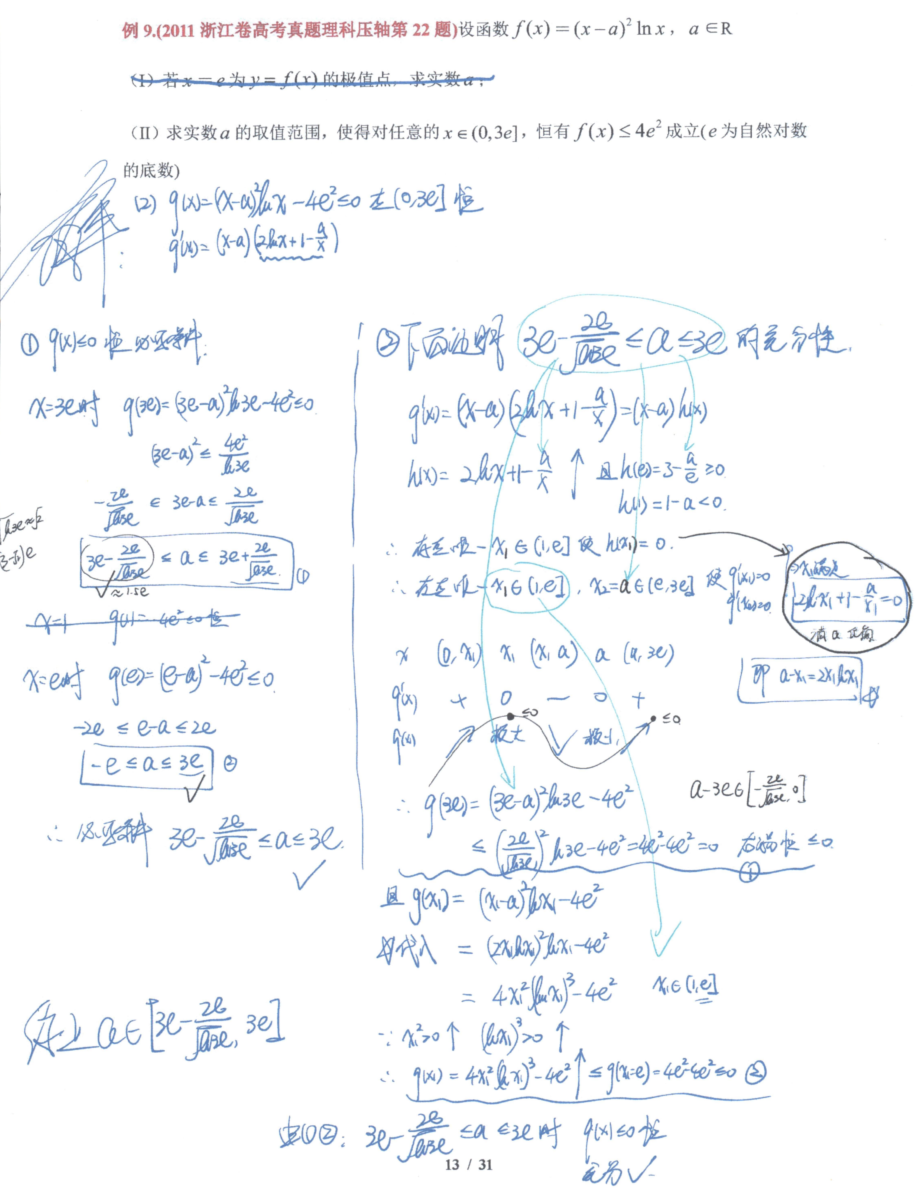 例 9.(2011 浙江卷高考真题理科压轴第 22 题)设函数 f(x)=(x-a)² ln x，a∈R
(I) 若 x=e 为 y=f(x) 的极值点，求实数 a；
(II) 求实数 a 的取值范围，使得对任意的 x∈(0,3e]，恒有 f(x)≤4e² 成立(e 为自然对数
的底数)
解：
(2) g(x)=(x-a)²lnx-4e²≤0 在(0,3e]恒
g'(x)=(x-a)(2lnx+1-a/x)
① g(x)≤0 恒 必要条件.
x=3e时 g(3e)=(3e-a)²ln3e-4e²≤0
(3e-a)²≤4e²/ln3e
-2e/√ln3e ≤ 3e-a ≤ 2e/√ln3e
√ln3e≈√2
3e-2e/√ln3e ≤ a ≤ 3e+2e/√ln3e ①
≈1.5e
x=1 g(1)=-4e²≤0 恒
x=e时 g(e)=(e-a)²-4e²≤0.
-2e ≤ e-a ≤ 2e
-e≤a≤3e ②
∴ 必要条件 3e-2e/√ln3e ≤a≤3e.
② 下面证明 3e-2e/√ln3e ≤a≤3e 的充分性.
g'(x)=(x-a)(2lnx+1-a/x)=(x-a)h(x)
h(x)=2lnx+1-a/x ↑ 且h(e)=3-a/e≥0
h(1)=1-a<0.
∴ 存在唯一x₁∈(1,e] 使 h(x₁)=0.
∴ 存在唯一x₁∈(1,e], x₂=a∈(e,3e] 使 g'(x₁)=0
g'(x₂)=0
x₁满足
2lnx₁+1-a/x₁=0
消a
即 a-x₁=2x₁lnx₁
x (0,x₁) x₁ (x₁,a) a (a,3e)
g'(x) + 0 - 0 +
g(x) ↗ 极大 ↘ 极小 ↗
≤0
≤0
a-3e∈[-2e/√ln3e,0]
∴ g(3e)=(3e-a)²ln3e-4e²
≤(2e/√ln3e)²ln3e-4e²=4e²-4e²=0 右端恒≤0. ①
且 g(x₁)=(x₁-a)²lnx₁-4e²
代入 =(2x₁lnx₁)²lnx₁-4e²
=4x₁²(lnx₁)³-4e² x₁∈(1,e]
∵ x₁²>0↑ (lnx₁)³>0 ↑
∴ g(x₁)=4x₁²(lnx₁)³-4e²↑≤g(x₁=e)=4e²-4e²≤0 ②
由①②: 3e-2e/√ln3e ≤a≤3e时 g(x)≤0恒
充分✓
综上 a∈[3e-2e/√ln3e, 3e]
13 / 31